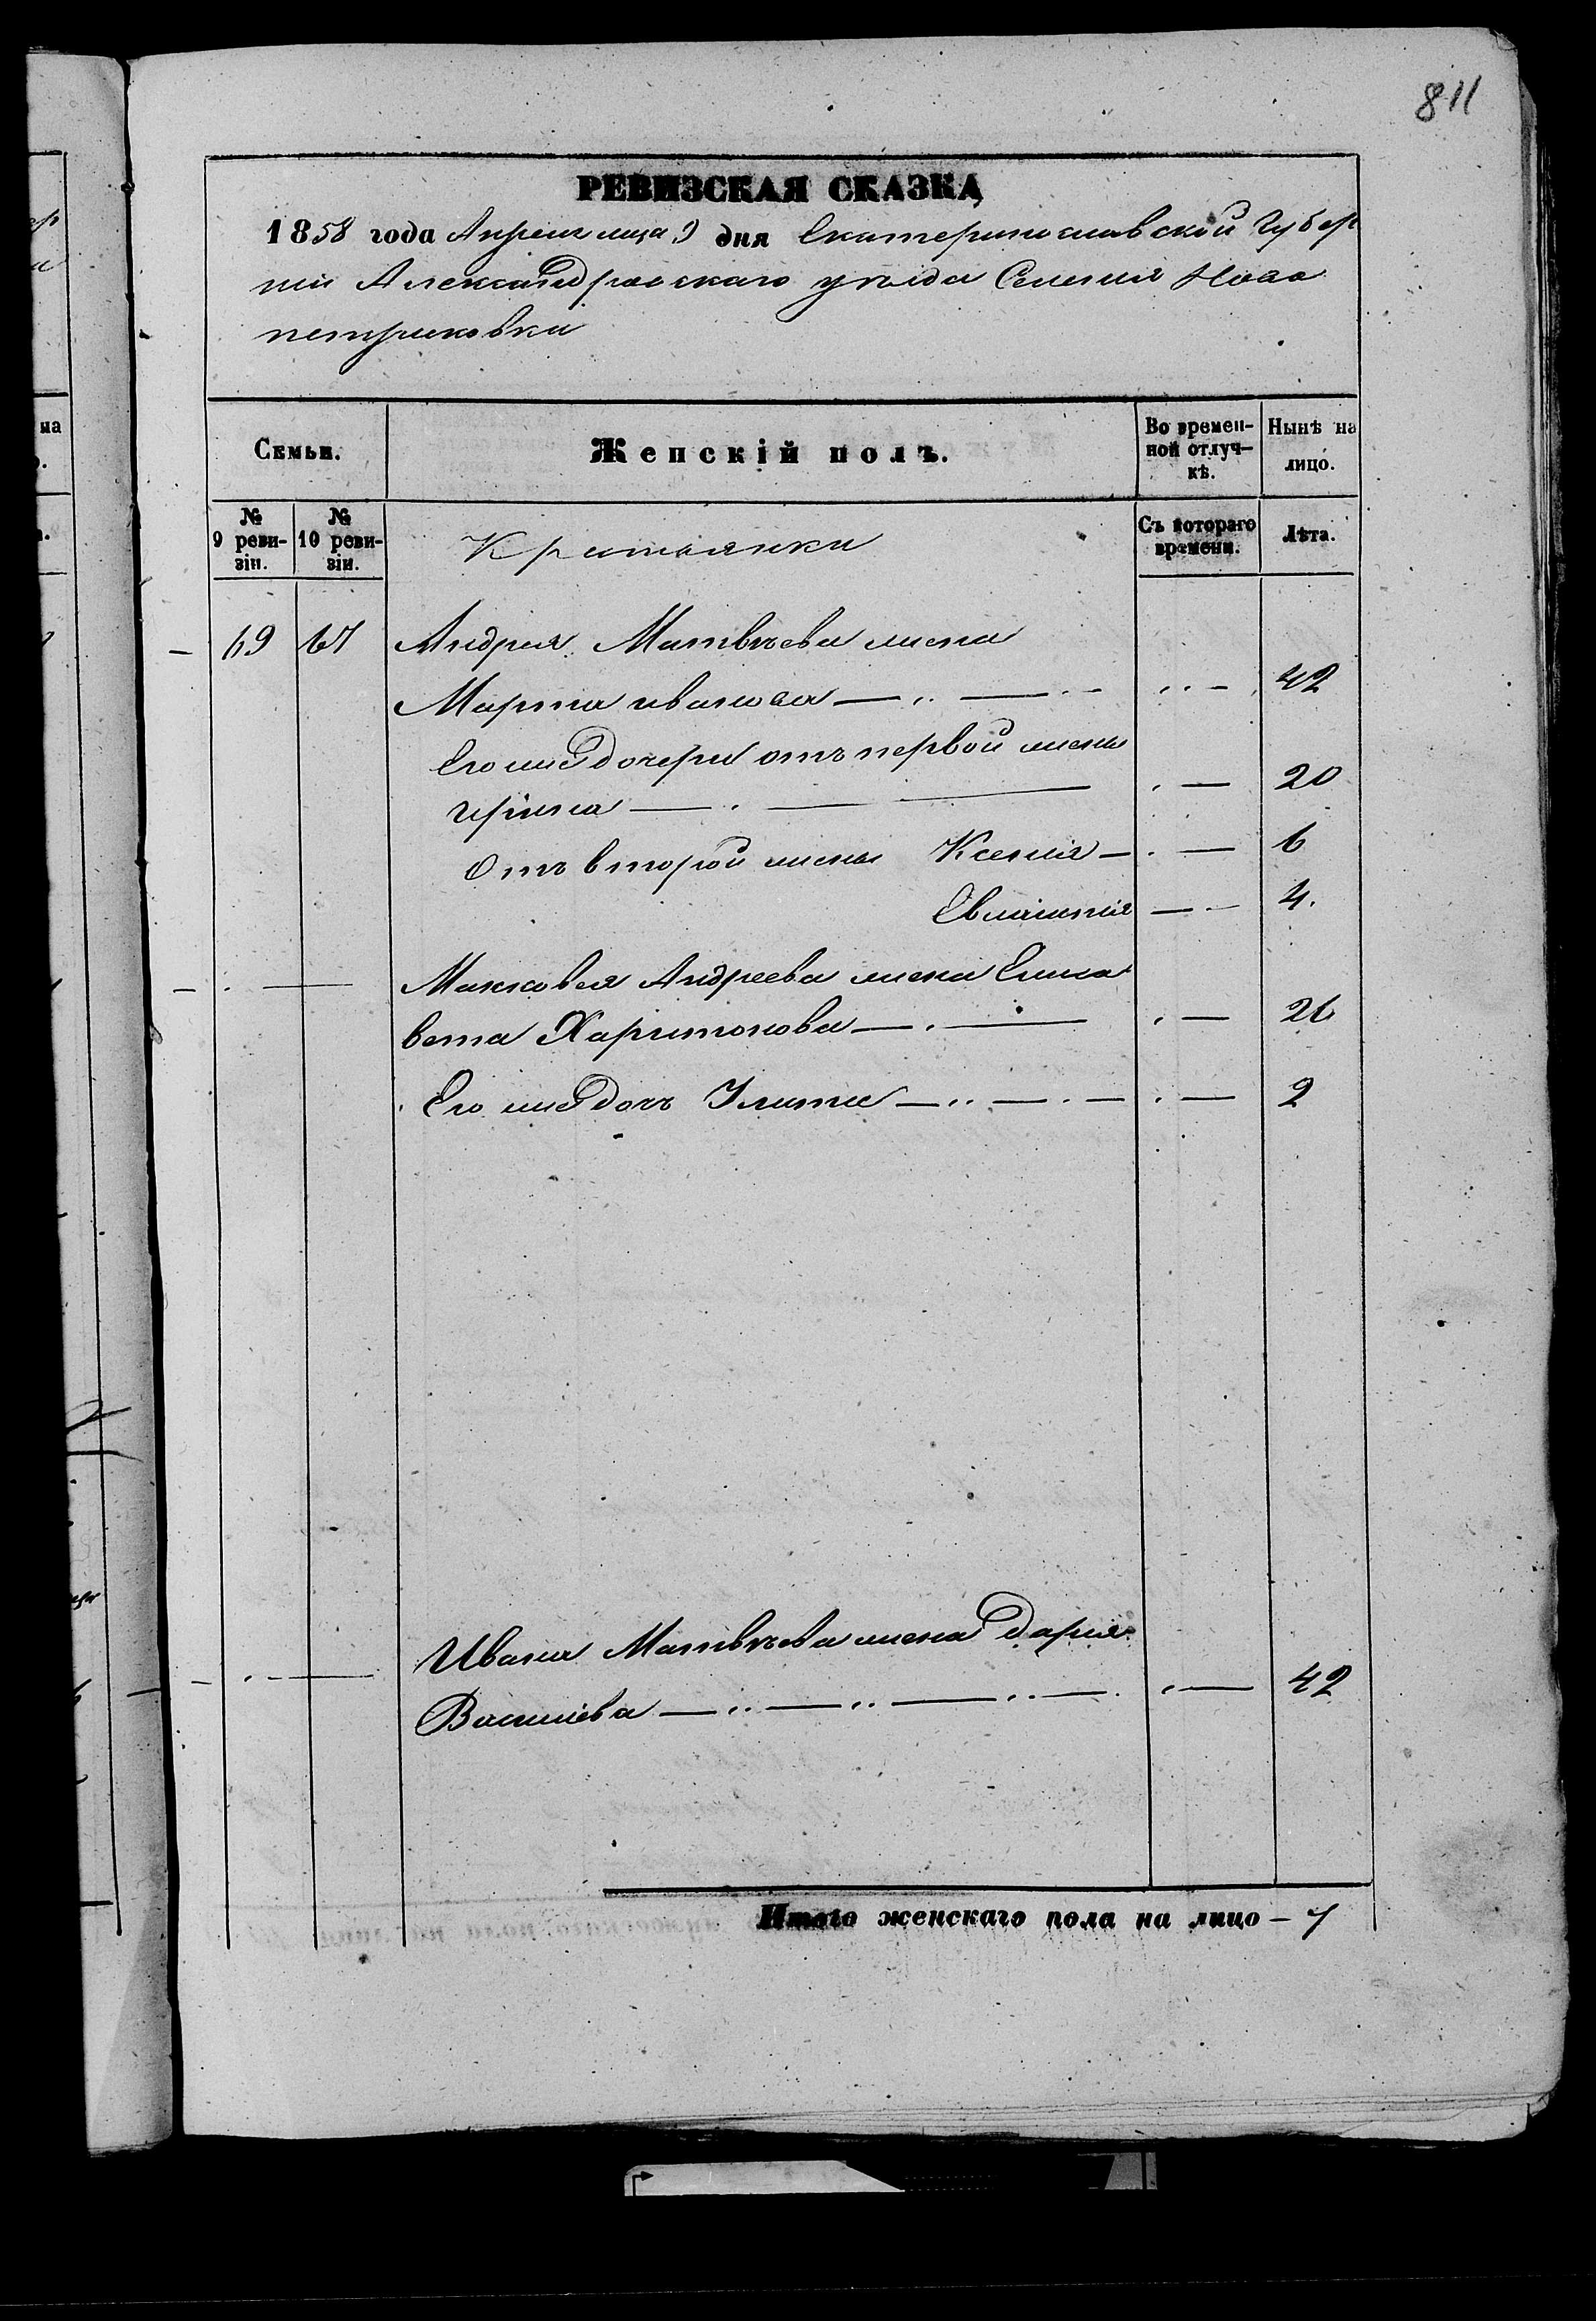 811
РЕВИЗСКАЯ СКАЗКА
1858 года Апреля мца 9 дня Екатеринославской Губер
ніи Александровскаго уѣзда Селенія Ново
петриковки
Семьи.
Женскій полъ.
Во времен-
ной отлуч-
кѣ.
Нынѣ на
лицо.
№
9 реви-
зіи.
№
10 реви-
зіи.
Крестьянки
Съ котораго
времени.
Лѣта.
69 67 Андрея Матвѣева жена
Марта иванова 42
Его же дочери отъ первой жены
ирина 20
Отъ второй жены Ксенія 6
4.
Маккавея Андреева жена Елиса
вета Харитонова 26
Его же дочь 2
Ивана Матвѣева жена дарія
Василіева 42
Итого женскаго пола на лицо – 7